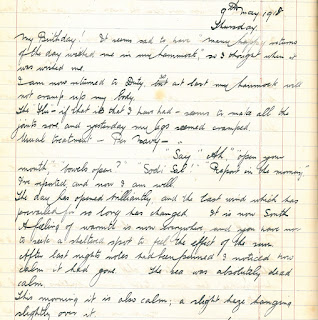 9th May 1918
Thursday
My Birthday! It seems sad to have "many happy returns
of the day wished me in my hammock", so I thought when it
was wished me.
I am now returned to Duty, but at last my hammock will
not cramp up my body.
The 'Flu - if that is what I have had - seems to make all the
joints sore, and yesterday my legs seemed cramped.
Usual treatment - Per Navy -
"Say "Ah," "open your
month," "bowels open?" "Sodii Sal" "Report in the morning"
I've reported, and now I am well.
The day has opened brilliantly, and the East wind which has
prevailed for so long has changed. It is now South
A feeling of warmth is now everywhere and you have not
to seek a sheltered spot to feel the effect of the sun.
After last nights notes had been penned I noticed how
calm it had gone. The sea was absolutely dead
calm.
This morning it is also calm; a slight haze hanging
slightly over it.